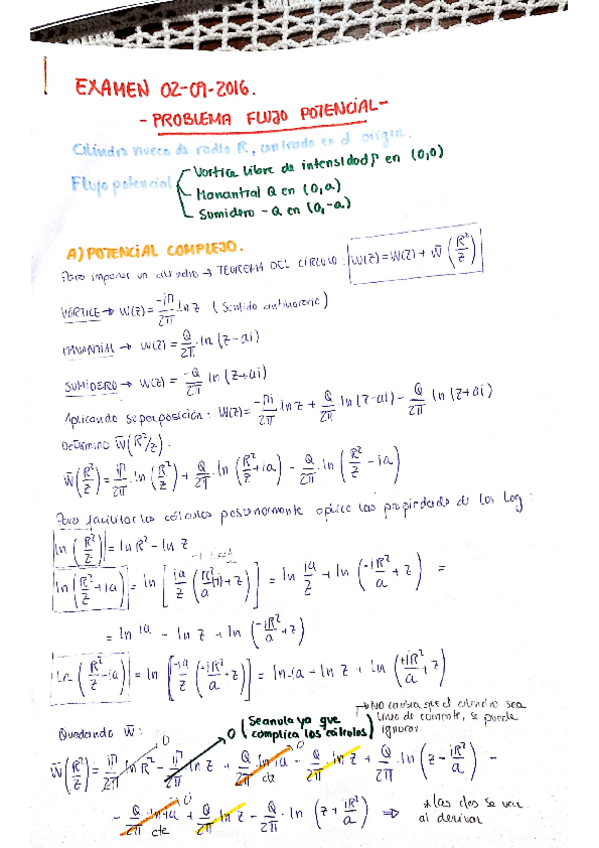 EXAMEN 02-09-2016.
- PROBLEMA FLUJO POTENCIAL -
Cilindro hueco de radio R, centrado en el origen.
Flujo potencial
Vortice libre de intensidad Γ en (0,0)
Manantial Q en (0,a)
Sumidero -Q en (0,-a)
A) POTENCIAL COMPLEJO.
Para imponer un cilindro → TEOREMA DEL CÍRCULO: W(z) = W(z) + W̄ (R²/z)
VÓRTICE → W(z) = -iΓ/2π · ln z (Sentido antihorario)
MANANTIAL → W(z) = Q/2π · ln (z-ai)
SUMIDERO → W(z) = -Q/2π ln (z+ai)
Aplicando superposición: W(z) = -Γi/2π ln z + Q/2π ln (z-ai) - Q/2π ln (z+ai)
Determino W̄(R²/z):
W̄(R²/z) = iΓ/2π · ln (R²/z) + Q/2π · ln (R²/z + ia) - Q/2π · ln (R²/z - ia)
Para facilitar los cálculos posteriormente aplico las propiedades de los log:
ln (R²/z) = ln R² - ln z
ln (R²/z + ia) = ln [ia/z (R²/a + z)] = ln ia/z + ln (-iR²/a + z) =
= ln ia - ln z + ln (-iR²/a + z)
ln (R²/z - ia) = ln [-ia/z (-iR²/a + z)] = ln -ia - ln z + ln (+iR²/a + z)
→ No cambia que el cilindro sea línea de corriente, se puede ignorar.
Quedando W̄:
0 (Se anula ya que complica los cálculos)
W̄(R²/z) = iΓ/2π ln R² - iΓ/2π ln z + Q/2π ln ia - Q/2π ln z + Q/2π · ln (z - iR²/a) -
cte
- Q/2π · ln -ia + Q/2π ln z - Q/2π · ln (z + iR²/a) ⇒ * las ctes se van al derivar
cte